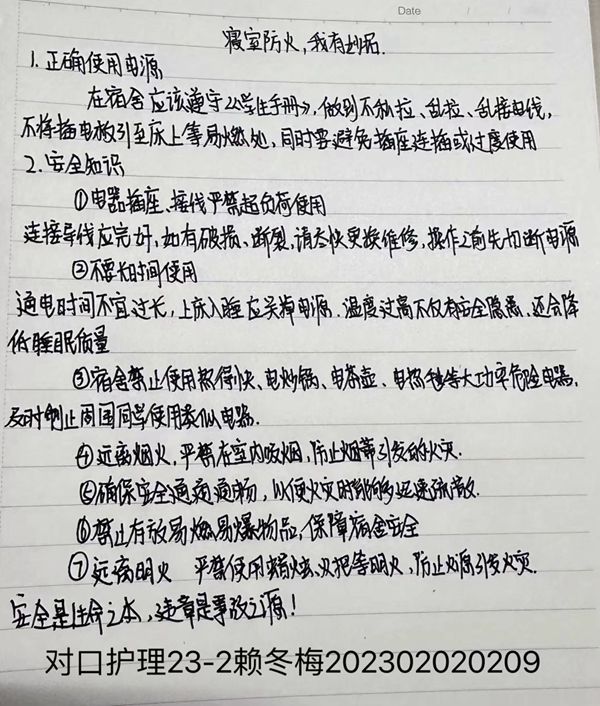 Date / /
寝室防火,我有妙招.
1.正确使用电源
在宿舍应该遵守《学生手册》,做到不私拉、乱拉、乱接电线,
不将插电板引至床上等易燃处,同时要避免插座连插或过度使用
2.安全知识
①电器插座、接线严禁超负荷使用
连接导线应完好,如有破损、断裂,请尽快更换维修,操作之前先切断电源
②不要长时间使用
通电时间不宜过长,上床入睡应关掉电源.温度过高不仅有安全隐患,还会降
低睡眠质量
③宿舍禁止使用热得快、电炒锅、电茶壶、电热毯等大功率危险电器,
及时制止周围同学使用类似电器.
④远离烟火,严禁在室内吸烟,防止烟蒂引发的火灾.
⑤确保安全通道通畅,以便火灾时能够迅速疏散.
⑥禁止存放易燃易爆物品,保障宿舍安全
⑦远离明火 严禁使用蜡烛、火把等明火,防止火源引发火灾.
安全是生命之本,违章是事故之源!
对口护理23-2赖冬梅202302020209